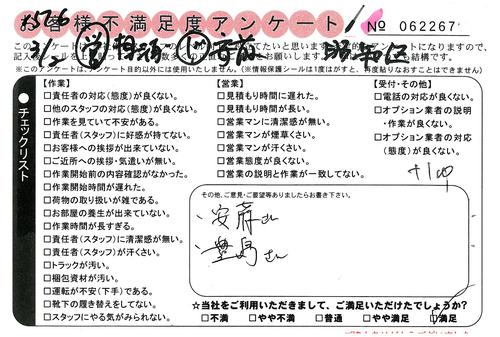 お客様不満足度アンケート
No 062267
※このアンケートは、アンケート目的以外には使用いたしません。(※情報保護シールは1度はがすと、再度貼りなおすことはできません)
●チェックリスト
【作業】
□責任者の対応(態度)が良くない。
□他のスタッフの対応(態度)が良くない。
□作業を見ていて不安がある。
□責任者(スタッフ)に好感が持てない。
□お客様への挨拶が出来ていない。
□ご近所への挨拶・気遣いが無い。
□作業開始前の内容確認がなかった。
□作業開始時間が遅れた。
□荷物の取り扱いが雑である。
□お部屋の養生が出来ていない。
□作業時間が長すぎる。
□責任者(スタッフ)に清潔感が無い。
□責任者(スタッフ)が汗くさい。
□トラックが汚い。
□梱包資材が汚い。
□運転が不安(下手)である。
□靴下の履き替えをしてない。
□スタッフにやる気がみられない。
【営業】
□見積もり時間に遅れた。
□見積もり時間が長い。
□営業マンに清潔感が無い。
□営業マンが煙草くさい。
□営業マンが汗くさい。
□営業態度が良くない。
□営業の説明と作業が一致してない。
【受付・その他】
□電話の対応が良くない。
□オプション業者の説明・作業が良くない。
□オプション業者の対応(態度)が良くない。
その他、ご意見・ご要望等ありましたらお書き下さい。
安斎さん
豊島さん
☆当社をご利用いただきまして、ご満足いただけたでしょうか?
□不満 □やや不満 □普通 □やや満足 □満足